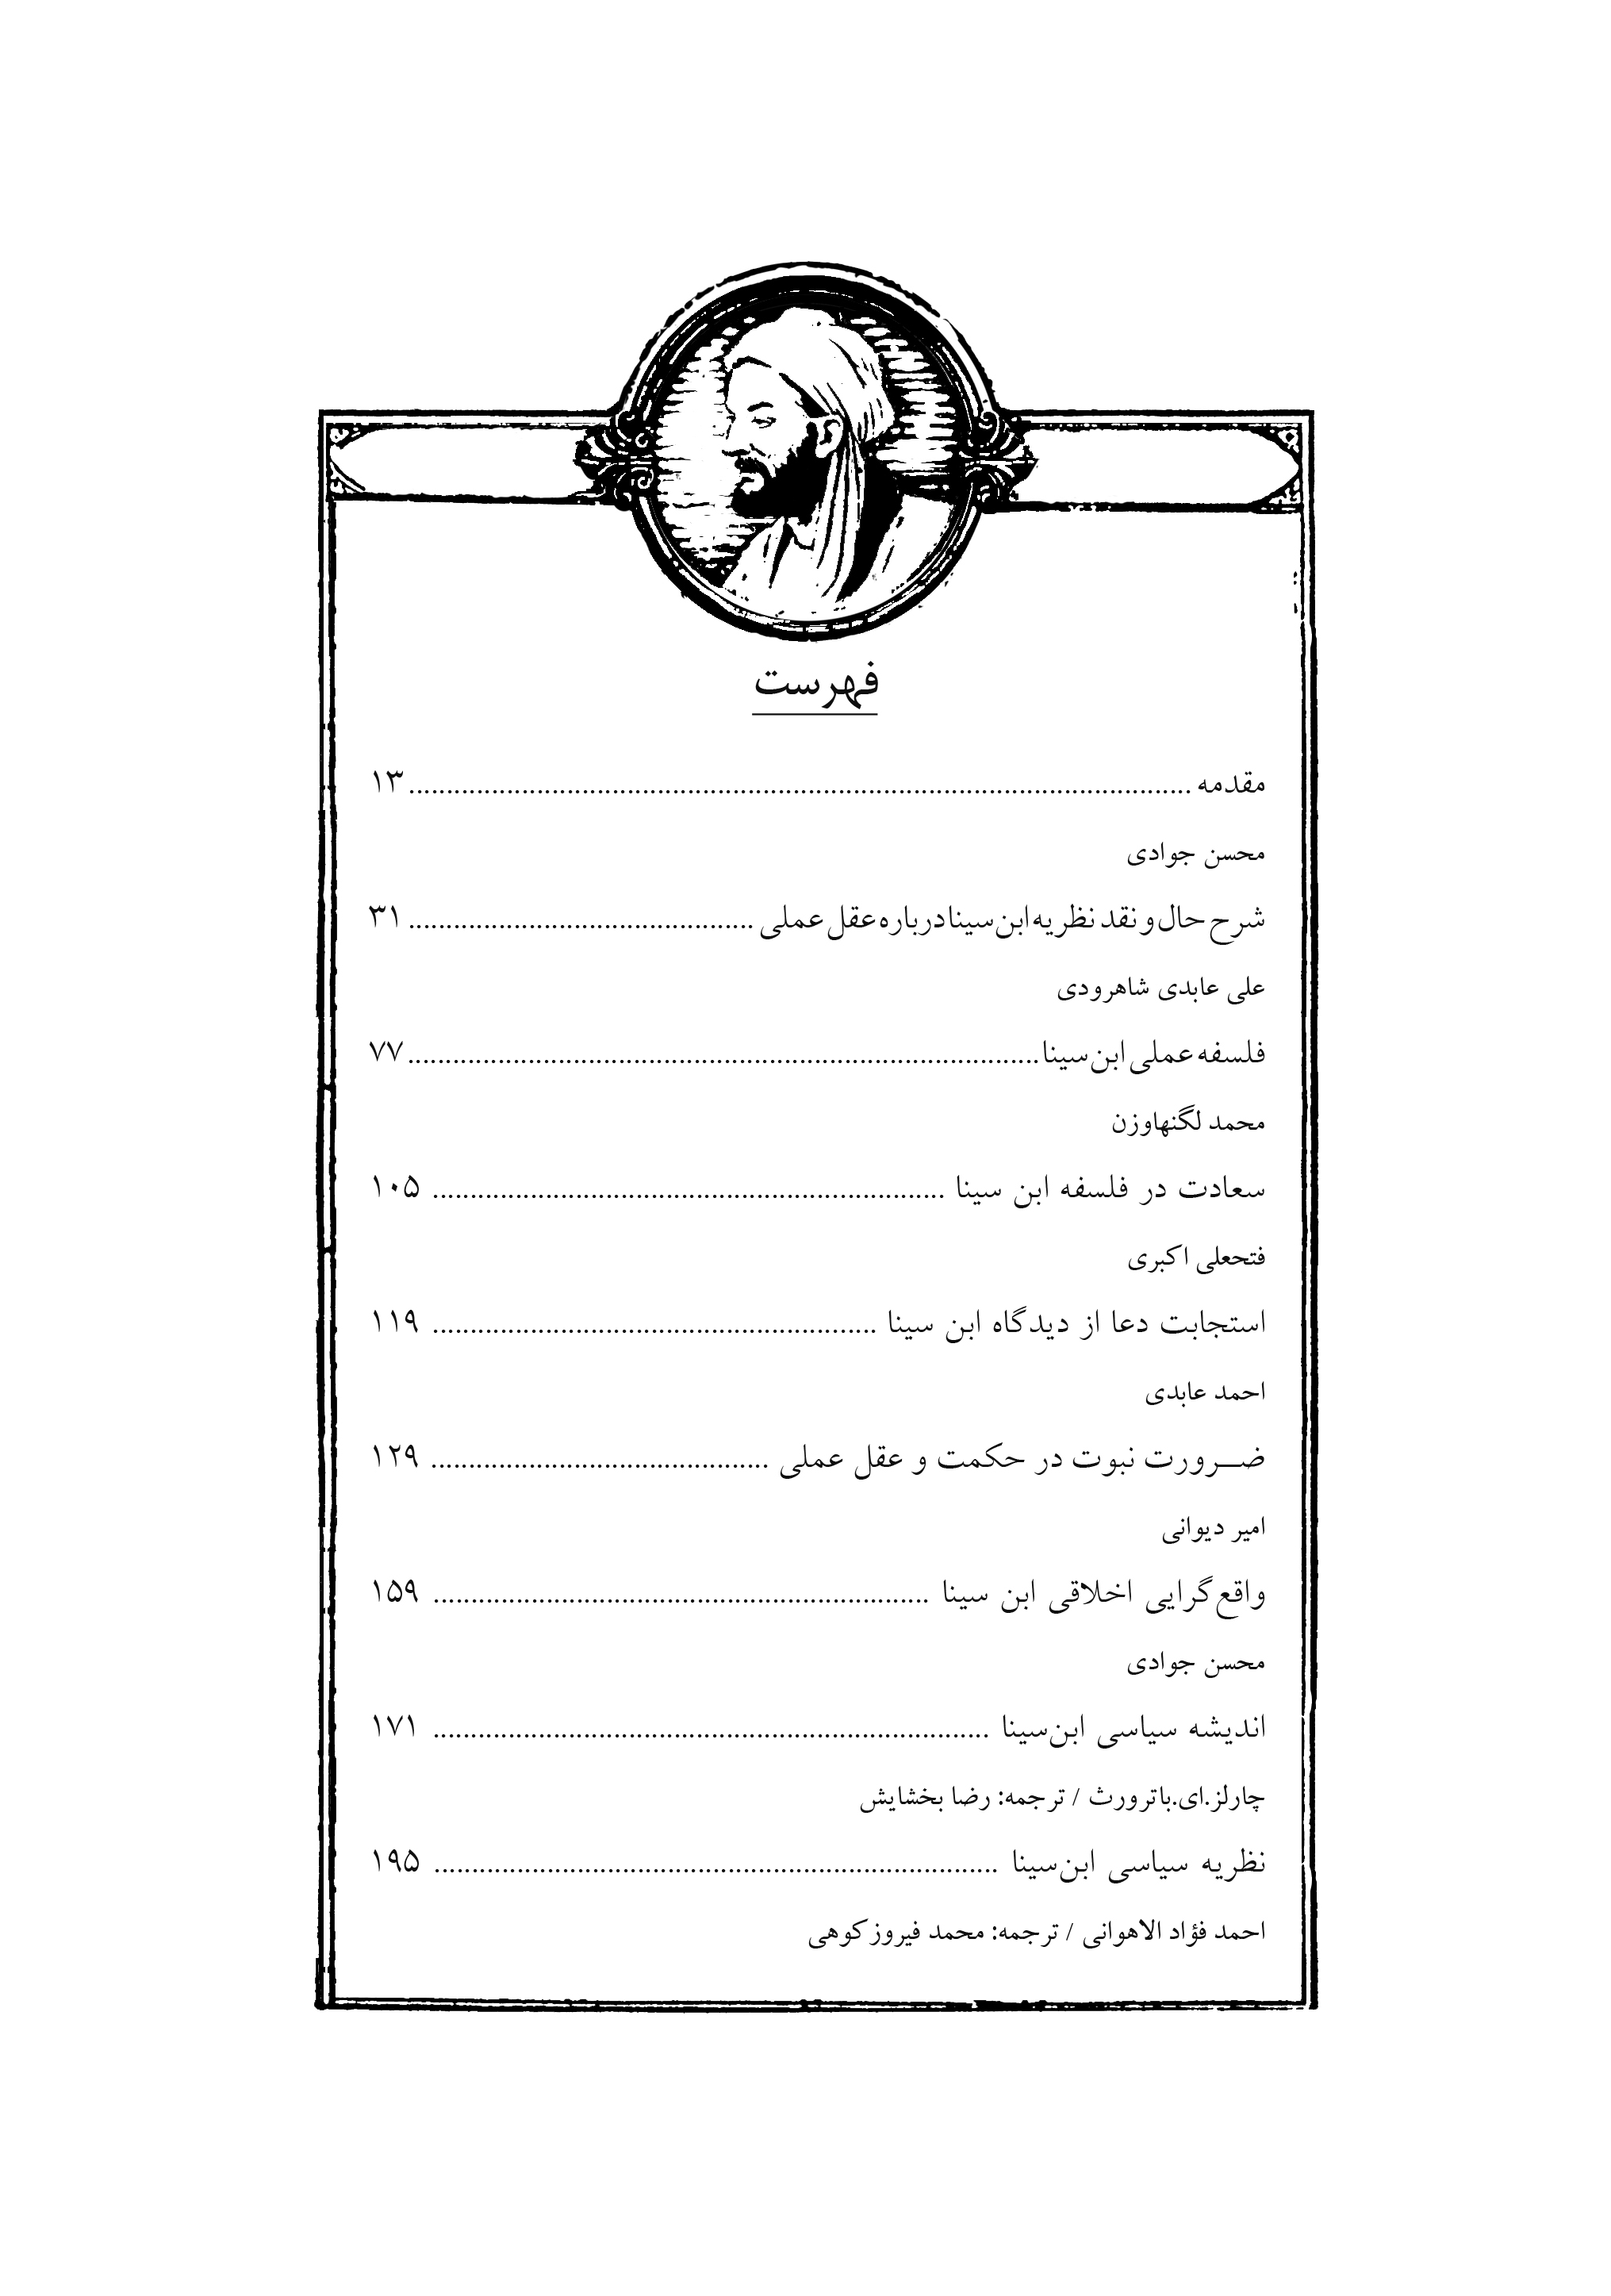 فهرست
مقدمه ........................................................................................................ ۱۳
محسن جوادی
شرح حال و نقد نظریه ابن‌سینا درباره عقل عملی .............................................. ۳۱
علی عابدی شاهرودی
فلسفه عملی ابن‌سینا .................................................................................... ۷۷
محمد لگنهاوزن
سعادت در فلسفه ابن سینا .................................................................... ۱۰۵
فتحعلی اکبری
استجابت دعا از دیدگاه ابن سینا ........................................................... ۱۱۹
احمد عابدی
ضـــرورت نبوت در حکمت و عقل عملی ............................................. ۱۲۹
امیر دیوانی
واقع‌گرایی اخلاقی ابن سینا .................................................................. ۱۵۹
محسن جوادی
اندیشه سیاسی ابن‌سینا .......................................................................... ۱۷۱
چارلز.ای.باترورث / ترجمه: رضا بخشایش
نظریه سیاسی ابن‌سینا ........................................................................... ۱۹۵
احمد فؤاد الاهوانی / ترجمه: محمد فیروزکوهی